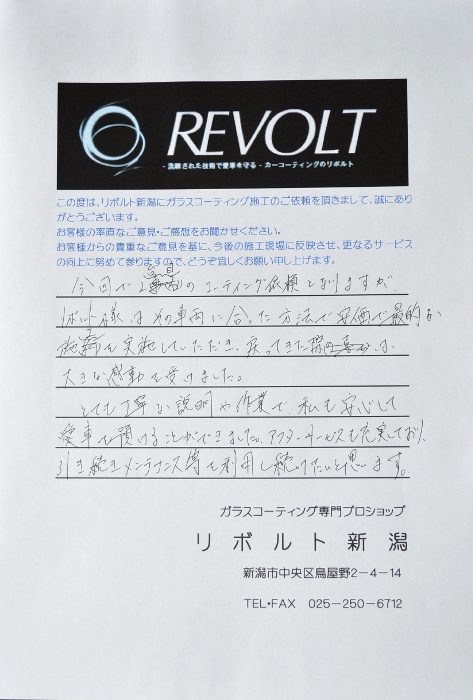 REVOLT
- 洗練された技術で愛車を守る - カーコーティングのリボルト
この度は、リボルト新潟にガラスコーティング施工のご依頼を頂きまして、誠にあり
がとうございます。
お客様の率直なご意見・ご感想をお聞かせください。
お客様からの貴重なご意見を基に、今後の施工現場に反映させ、更なるサービス
の向上に努めて参りますので、どうぞ宜しくお願い申し上げます。
今回で2台目のコーティング依頼となりますが、
リボルト様は、その車両に合った方法で安価で最的な
施工を実施していただき、戻ってきた際は
大きな感動を受けました。
とても丁寧な説明や作業で、私も安心して
愛車を預けることができました。アフターサービスも充実しており、
引き続きメンテナンス等を利用し続けたいと思います。
ガラスコーティング専門プロショップ
リボルト新潟
新潟市中央区鳥屋野2-4-14
TEL・FAX 025-250-6712